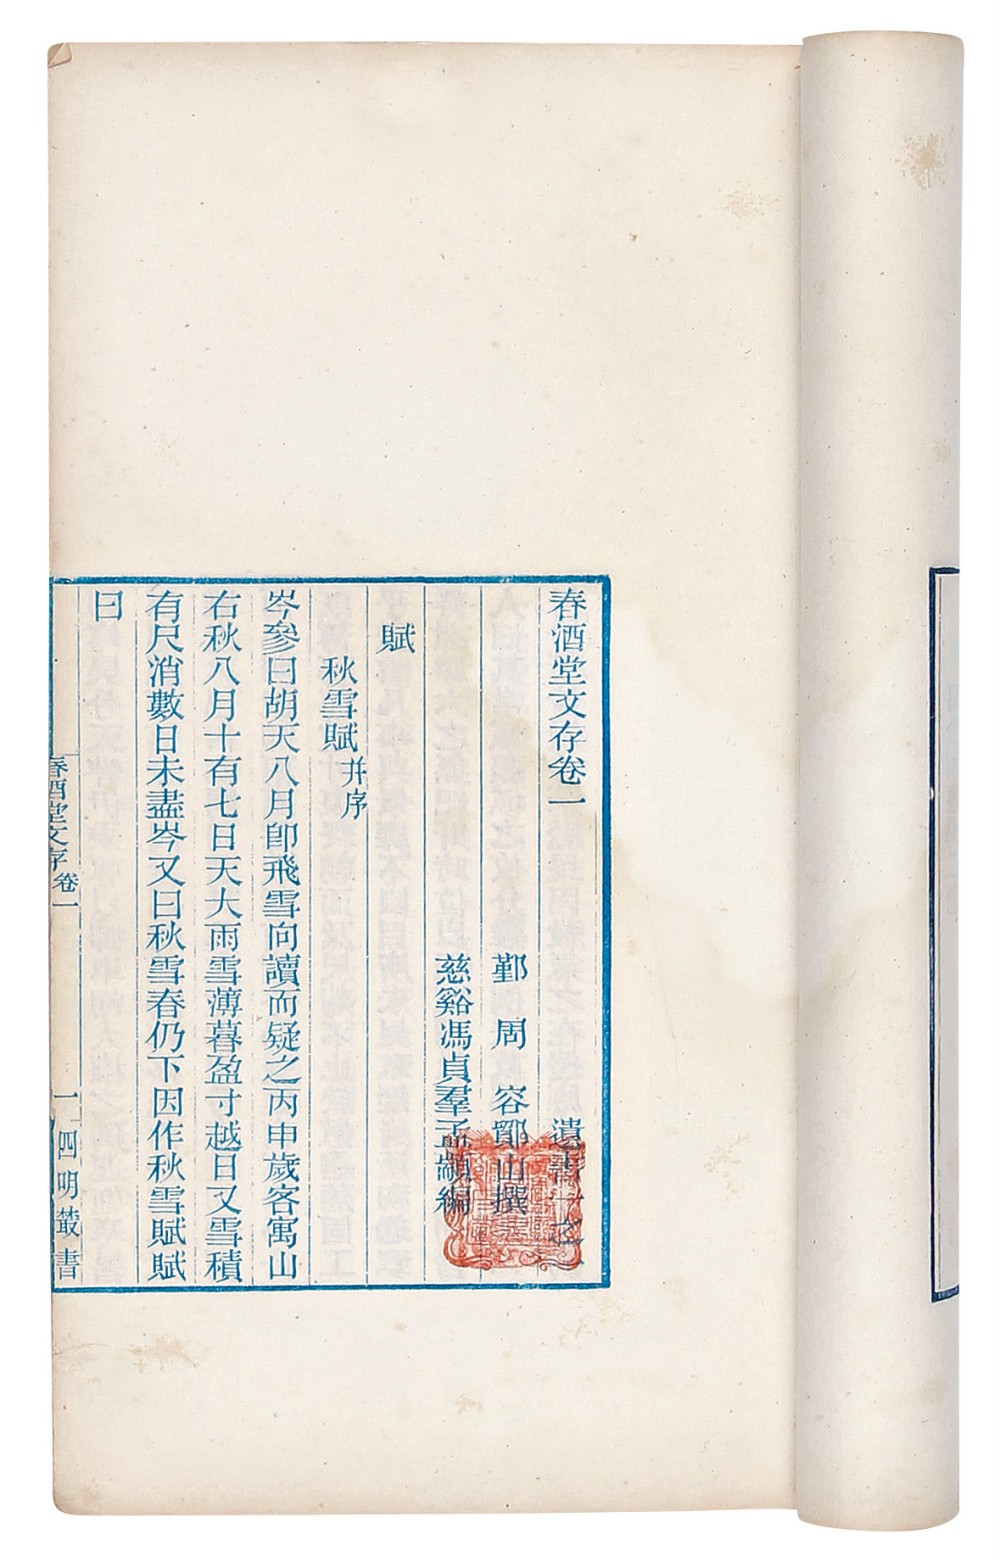 春酒堂文存卷一 遺書
鄞 周 容 鄮山撰
慈谿馮貞羣孟顓編
賦
秋雪賦 并序
岑參曰胡天八月卽飛雪向讀而疑之丙申歲客寓山
右秋八月十有七日天大雨雪薄暮盈寸越日又雪積
有尺消數日未盡岑又曰秋雪春仍下因作秋雪賦賦
曰
春酒堂文存 卷一 一 四明叢書